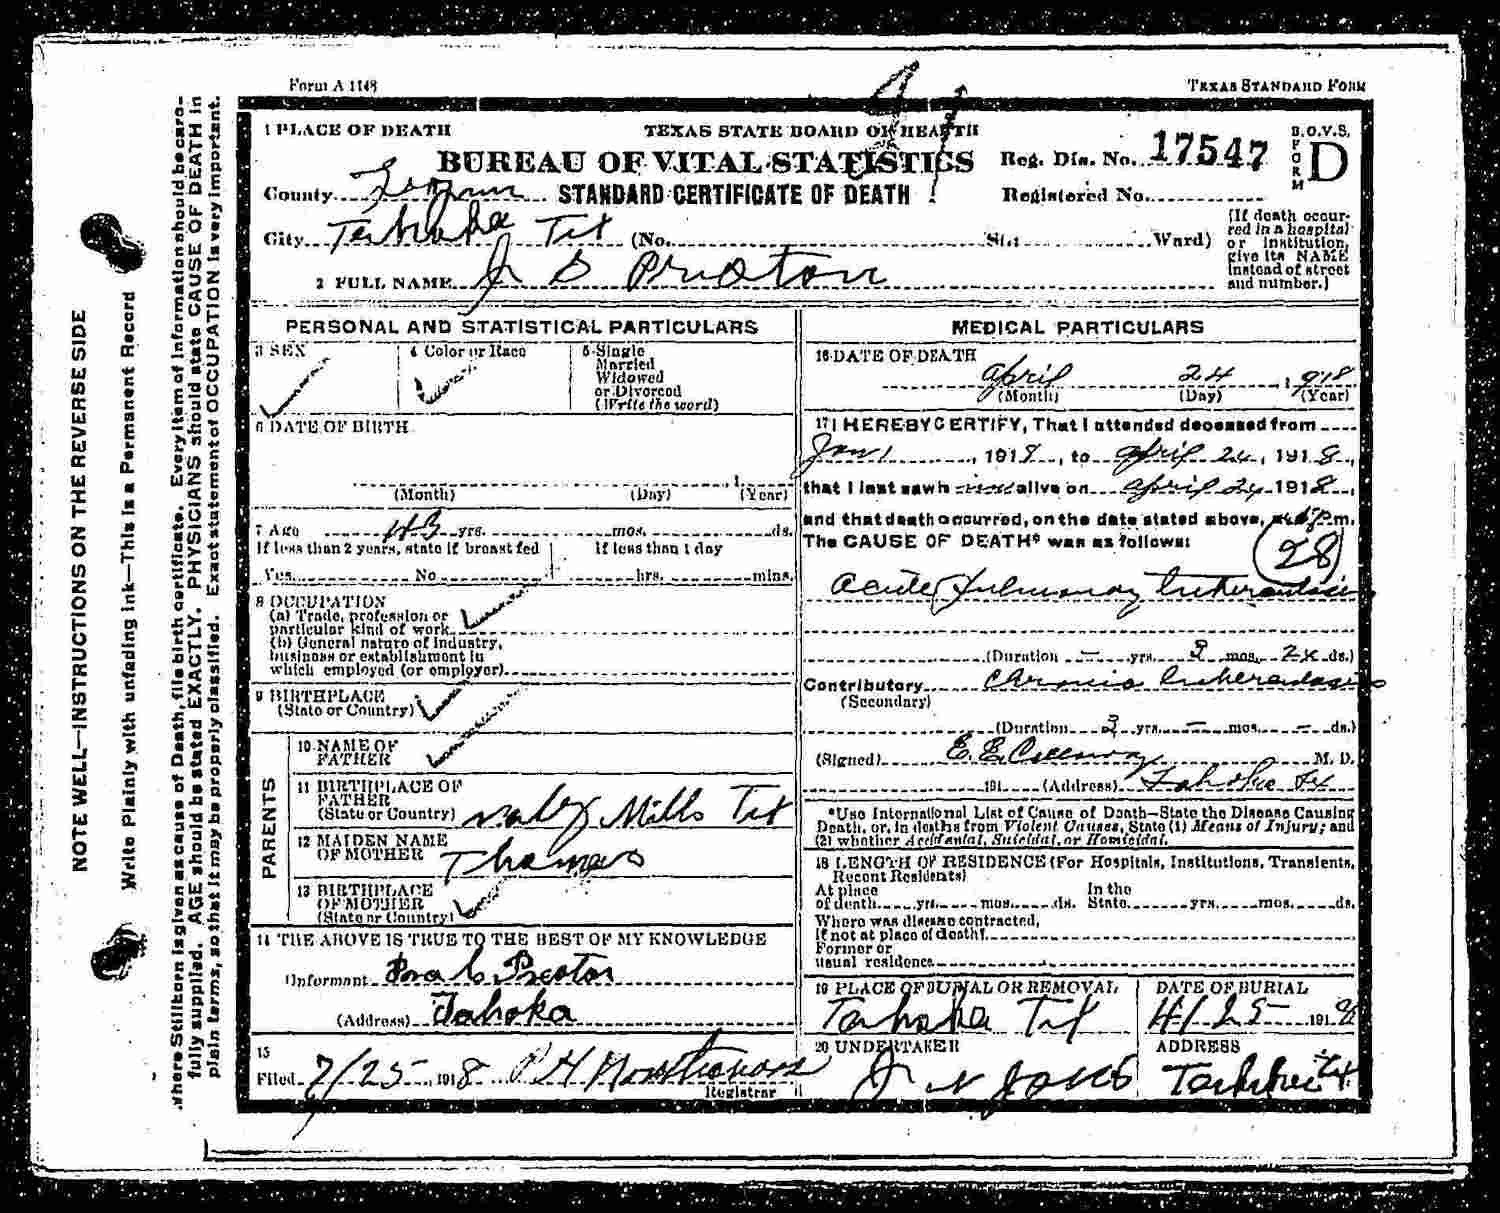 Form A 1148
TEXAS STANDARD FORM
1 PLACE OF DEATH
TEXAS STATE BOARD OF HEALTH
BUREAU OF VITAL STATISTICS
STANDARD CERTIFICATE OF DEATH
Reg. Dis. No. 17547
Registered No.
B.O.V.S.
FORM D
County
City Tahoka Tex (No. St.; Ward)
(If death occur-
red in a hospital
or institution,
give its NAME
instead of street
and number.)
2 FULL NAME J
PERSONAL AND STATISTICAL PARTICULARS
3 SEX
4 Color or Race
5 Single
Married
Widowed
or Divorced
(Write the word)
6 DATE OF BIRTH
(Month) (Day) (Year)
7 Age 43 yrs. mos. ds.
If less than 2 years, state if breast fed
Yes No
If less than 1 day
hrs. mins.
8 OCCUPATION
(a) Trade, profession or
particular kind of work
(b) General nature of Industry,
business or establishment in
which employed (or employer)
9 BIRTHPLACE
(State or Country)
PARENTS
10 NAME OF
FATHER
11 BIRTHPLACE OF
FATHER
(State or Country) Mills Tex
12 MAIDEN NAME
OF MOTHER Thomas
13 BIRTHPLACE
OF MOTHER
(State or Country)
14 THE ABOVE IS TRUE TO THE BEST OF MY KNOWLEDGE
Informant
(Address) Tahoka
15
Filed 7/25, 1918
Registrar
MEDICAL PARTICULARS
16 DATE OF DEATH
April 24, 1918
(Month) (Day) (Year)
17 I HEREBY CERTIFY, That I attended deceased from
Jan 1, 1918, to April 24, 1918,
that I last saw h alive on April 24 1918,
and that death occurred, on the date stated above, at m.
The CAUSE OF DEATH* was as follows:
28
Acute Pulmonary Tuberculosis
(Duration — yrs. 3 mos. 24 ds.)
Contributory Chronic Tuberculosis
(Secondary)
(Duration 3 yrs. — mos. — ds.)
(Signed) E. E. Callaway M. D.
191 (Address) Tahoka Tex
*Use International List of Cause of Death—State the Disease Causing
Death, or, in deaths from Violent Causes, State (1) Means of Injury; and
(2) whether Accidental, Suicidal, or Homicidal.
18 LENGTH OF RESIDENCE (For Hospitals, Institutions, Transients,
Recent Residents)
At place
of death yrs. mos. ds.
In the
State yrs. mos. ds.
Where was disease contracted,
If not at place of death?
Former or
usual residence
19 PLACE OF BURIAL OR REMOVAL
Tahoka Tex
DATE OF BURIAL
4/25 1918
20 UNDERTAKER
ADDRESS
Tahoka Tex
NOTE WELL—INSTRUCTIONS ON THE REVERSE SIDE
Write Plainly with unfading ink—This is a Permanent Record
Where Stillborn is given as cause of Death, file birth certificate. Every item of information should be care-
fully supplied. AGE should be stated EXACTLY. PHYSICIANS should state CAUSE OF DEATH in
plain terms, so that it may be properly classified. Exact statement of OCCUPATION is very important.